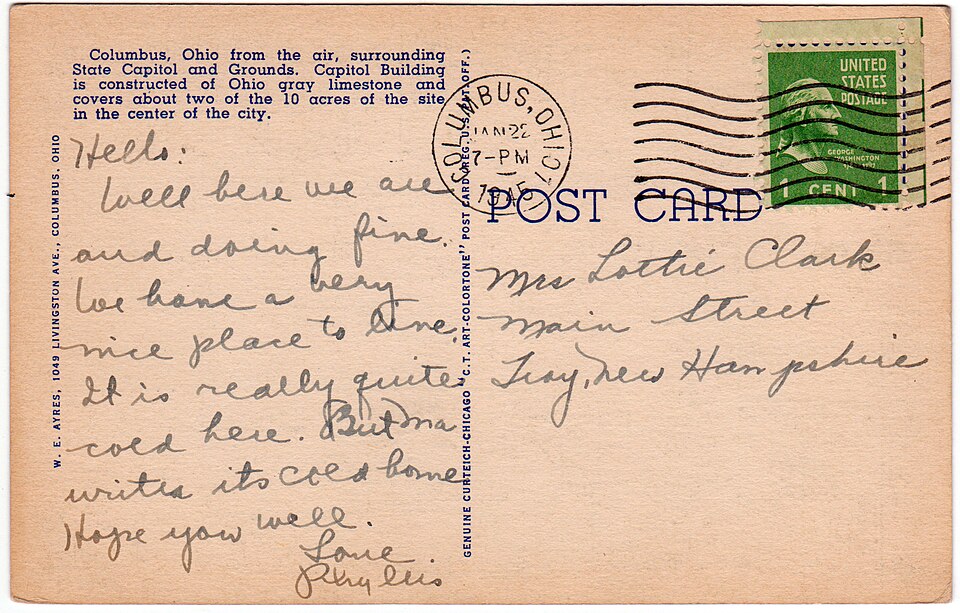 Columbus, Ohio from the air, surrounding
State Capitol and Grounds. Capitol Building
is constructed of Ohio gray limestone and
covers about two of the 10 acres of the site
in the center of the city.
Hello:
Well here we are
and doing fine.
We have a very
nice place to live.
It is really quite
cold here. But Ma
writes its cold home
Hope you well.
Love
Phyllis
W. E. AYRES, 1049 LIVINGSTON AVE., COLUMBUS, OHIO
GENUINE CURTEICH-CHICAGO "C.T. ART-COLORTONE" POST CARD (REG. U.S. PAT. OFF.)
COLUMBUS, OHIO
JAN 22
7-PM
POST CARD
UNITED
STATES
POSTAGE
GEORGE
WASHINGTON
1 CENT 1
Mrs Lottie Clark
Main Street
Troy, New Hampshire